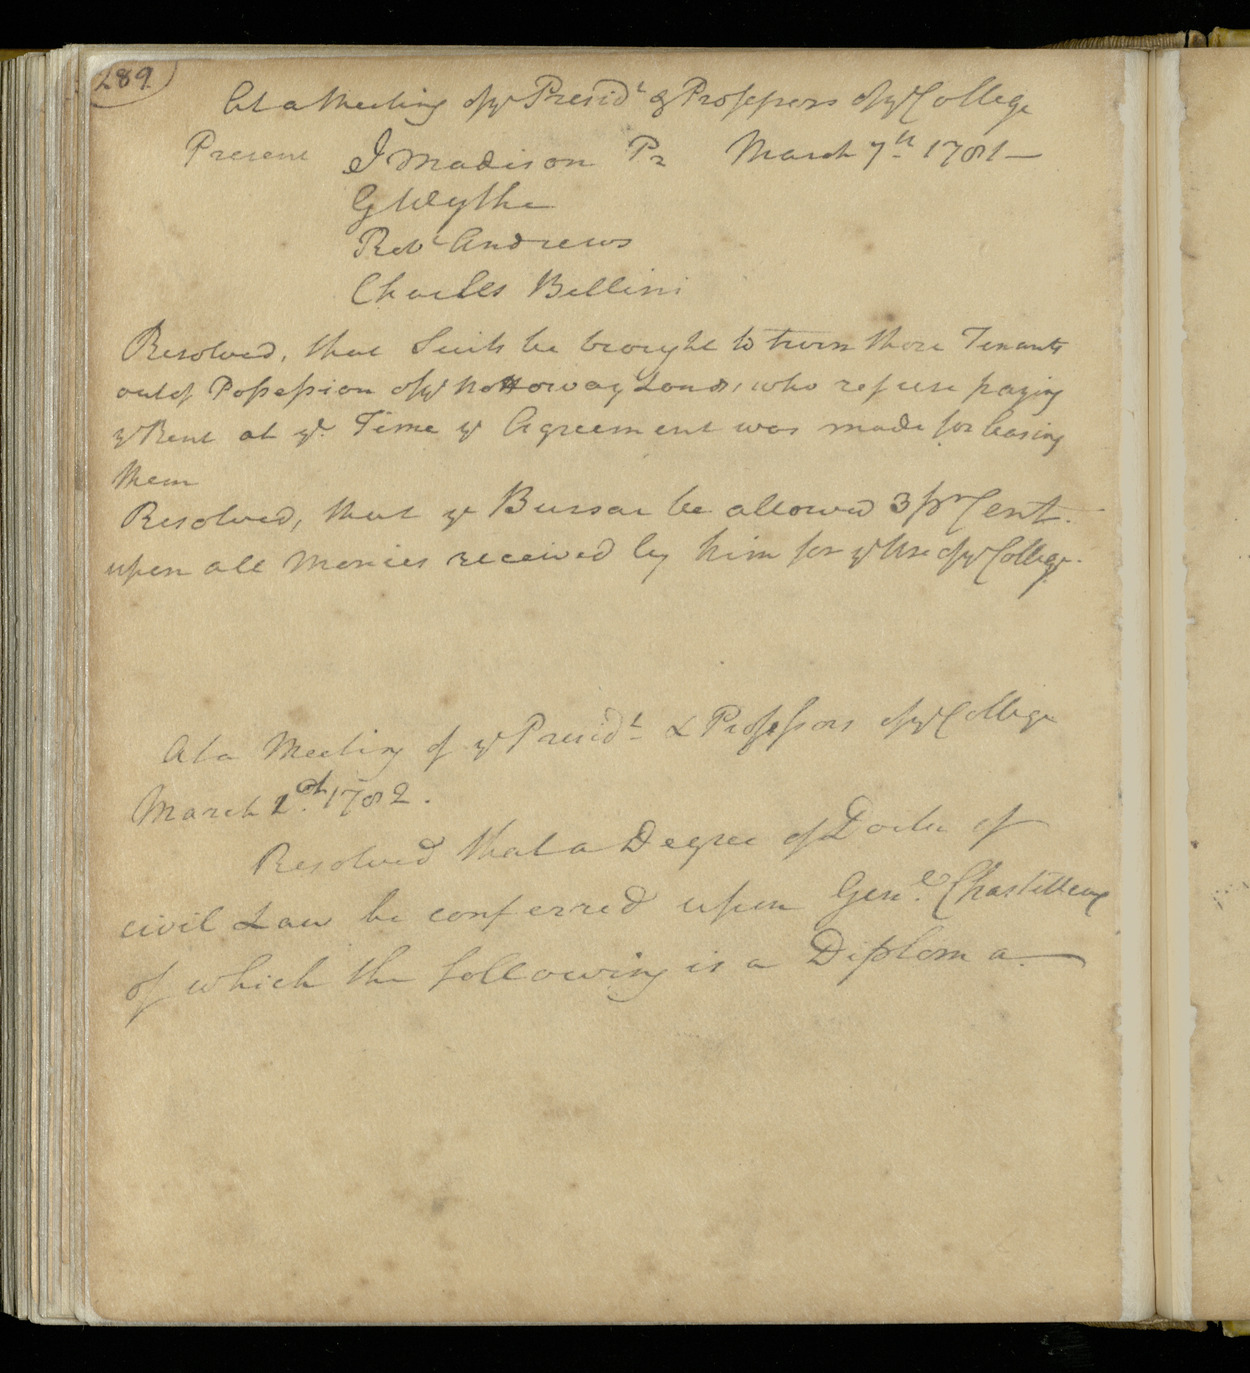 289
At a Meeting of ye Presidt & Professors of ye College
Present J Madison Pr March 7th 1781—
G Wythe
Robt Andrews
Charles Bellini
Resolved, that Suits be brought to turn those Tenants
out of Possession of ye Nottoway Lands, who refuse paying
ye Rent at ye Time ye Agreement was made for leasing
them
Resolved, that ye Bursar be allowed 3 pr Cent.
upon all Monies received by him for ye Use of ye College.
At a Meeting of ye Presidt & Professors of ye College
March 1782.
Resolved that a Degree of Doctr of
civil Law be conferred upon Genl. Chastelleux
of which the following is a Diploma.—